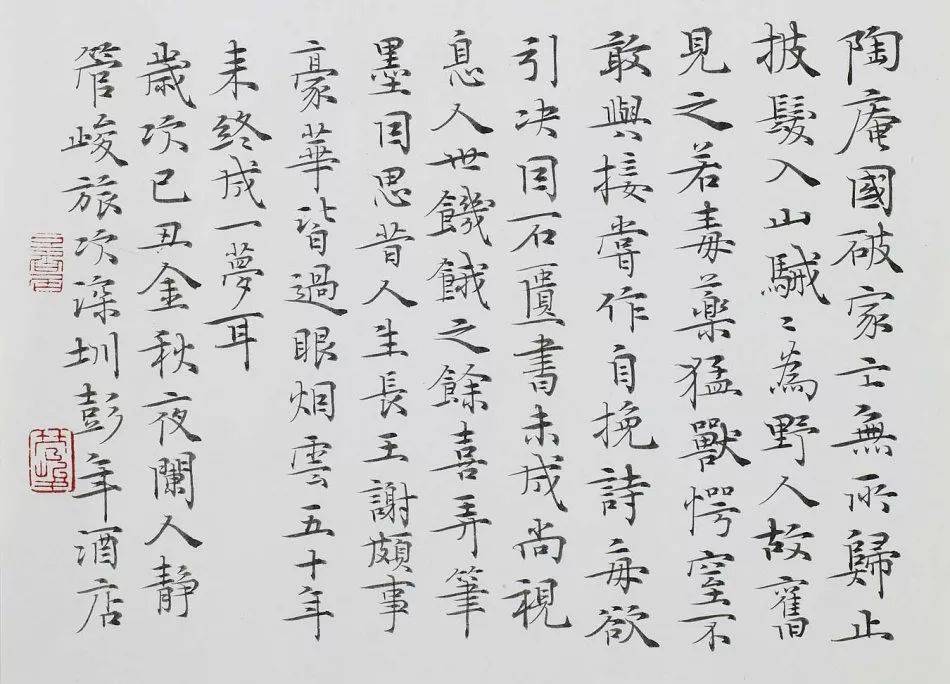 陶庵國破家亡無所歸止
披髮入山駴〻為野人故舊
見之若毒藥猛獸愕窒不
敢與接嘗作自挽詩每欲
引决因石匱書未成尚視
息人世饑餓之餘喜弄筆
墨因思昔人生長王謝頗事
豪華皆過眼烟雲五十年
来終成一夢耳
歲次己丑金秋夜闌人静
管峻旅次深圳彭年酒店